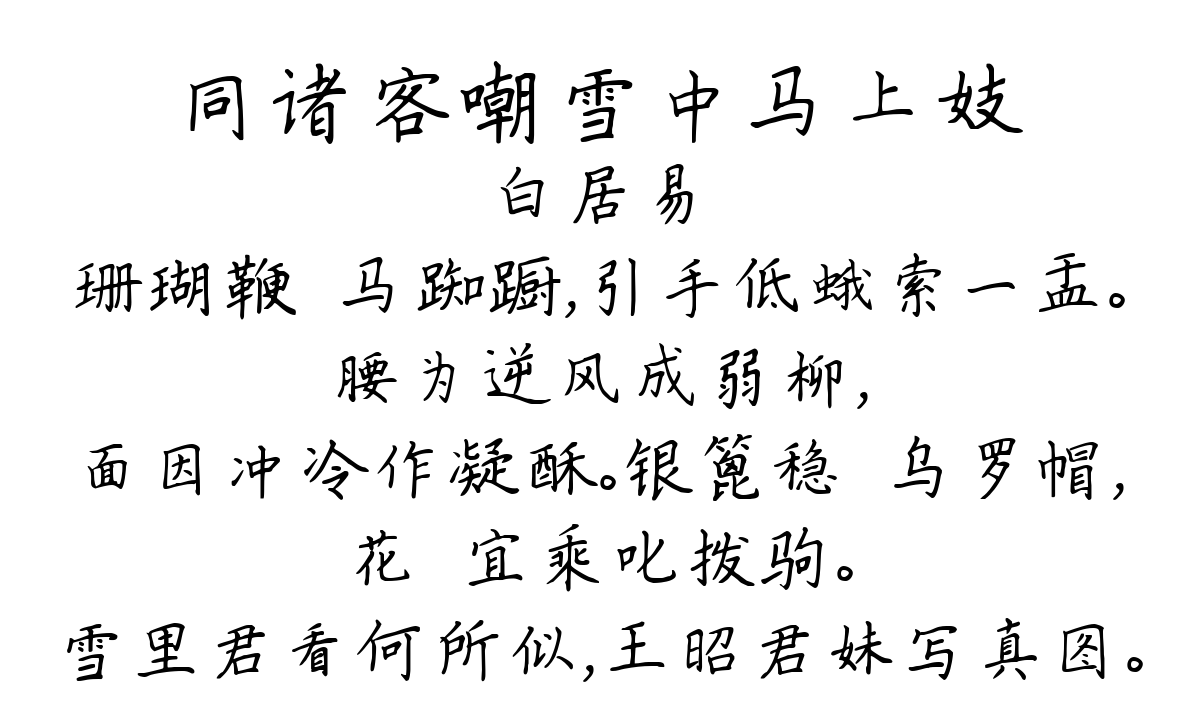 同诸客嘲雪中马上妓
白居易
珊瑚鞭 马踟蹰,引手低蛾索一盂。
腰为逆风成弱柳,
面因冲冷作凝酥。银篦稳 乌罗帽,
花 宜乘叱拨驹。
雪里君看何所似,王昭君妹写真图。